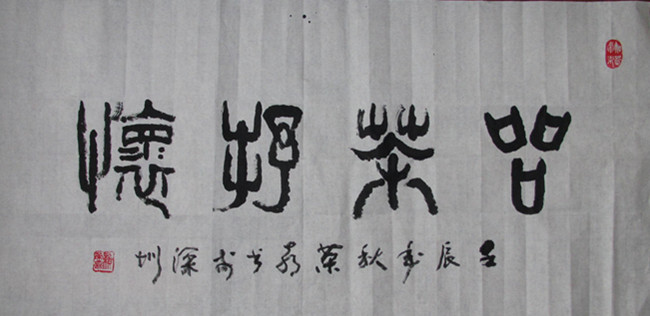 品茶抒懷
壬辰年秋书於深圳